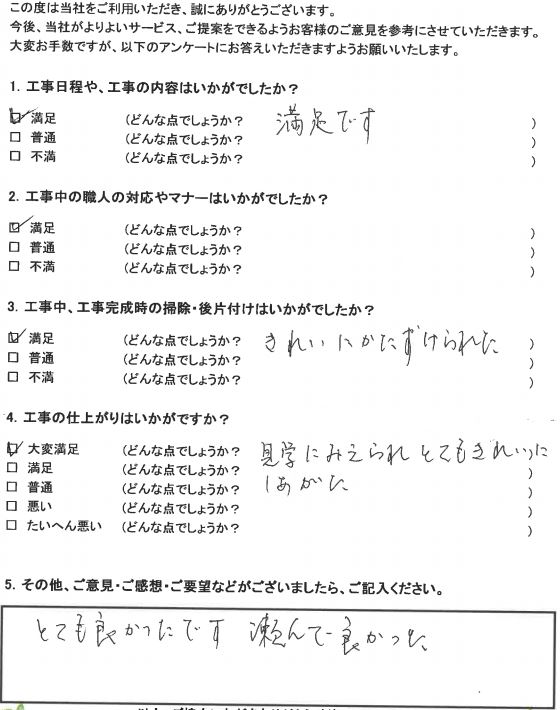 この度は当社をご利用いただき、誠にありがとうございます。
今後、当社がよりよいサービス、ご提案をできるようお客様のご意見を参考にさせていただきます。
大変お手数ですが、以下のアンケートにお答えいただきますようお願いいたします。
1. 工事日程や、工事の内容はいかがでしたか？
☑ 満足 (どんな点でしょうか？ 満足です )
□ 普通 (どんな点でしょうか？ )
□ 不満 (どんな点でしょうか？ )
2. 工事中の職人の対応やマナーはいかがでしたか？
☑ 満足 (どんな点でしょうか？ )
□ 普通 (どんな点でしょうか？ )
□ 不満 (どんな点でしょうか？ )
3. 工事中、工事完成時の掃除・後片付けはいかがでしたか？
☑ 満足 (どんな点でしょうか？ きれいにかたずけられた )
□ 普通 (どんな点でしょうか？ )
□ 不満 (どんな点でしょうか？ )
4. 工事の仕上がりはいかがですか？
☑ 大変満足 (どんな点でしょうか？ 見学にみえられとてもきれいに )
□ 満足 (どんな点でしょうか？ しあがた )
□ 普通 (どんな点でしょうか？ )
□ 悪い (どんな点でしょうか？ )
□ たいへん悪い (どんな点でしょうか？ )
5. その他、ご意見・ご感想・ご要望などがございましたら、ご記入ください。
とても良かったです 頼んで良かった